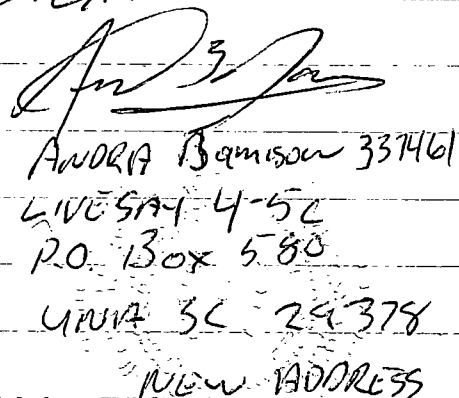 ANDRA Bamison 337461
LIVESAY 4-5C
P.O. Box 580
UNA SC 29378
NEW ADDRESS